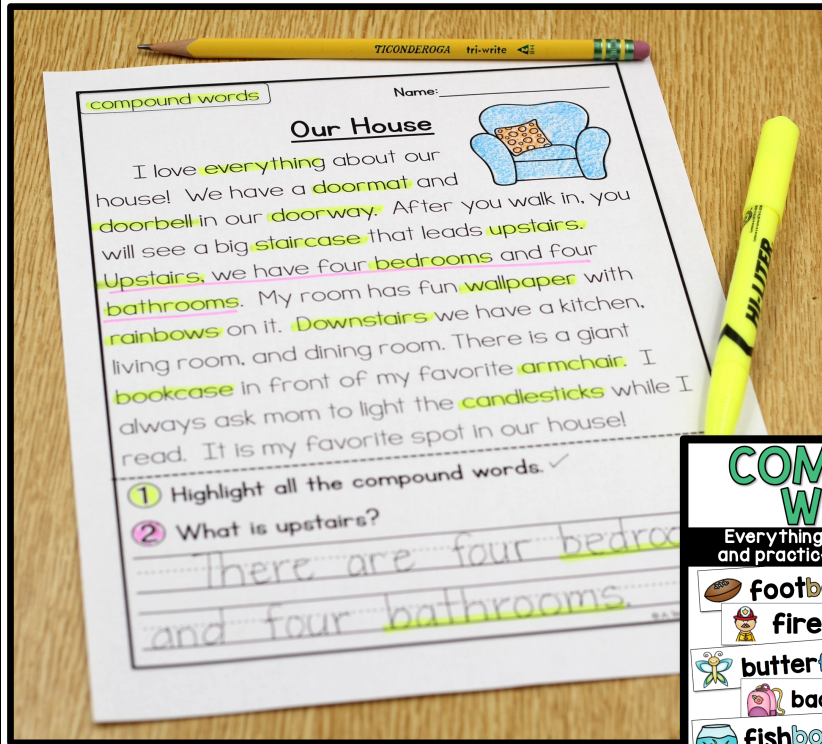 TICONDEROGA tri-write
compound words
Name:
Our House
I love everything about our
house! We have a doormat and
doorbell in our doorway. After you walk in, you
will see a big staircase that leads upstairs.
Upstairs, we have four bedrooms and four
bathrooms. My room has fun wallpaper with
rainbows on it. Downstairs we have a kitchen,
living room, and dining room. There is a giant
bookcase in front of my favorite armchair. I
always ask mom to light the candlesticks while I
read. It is my favorite spot in our house!
1 Highlight all the compound words. ✓
2 What is upstairs?
There are four bedroo
and four bathrooms.
HI-LITER
COM
W
Everything
and practic
footb
fire
butterf
bac
fishbo